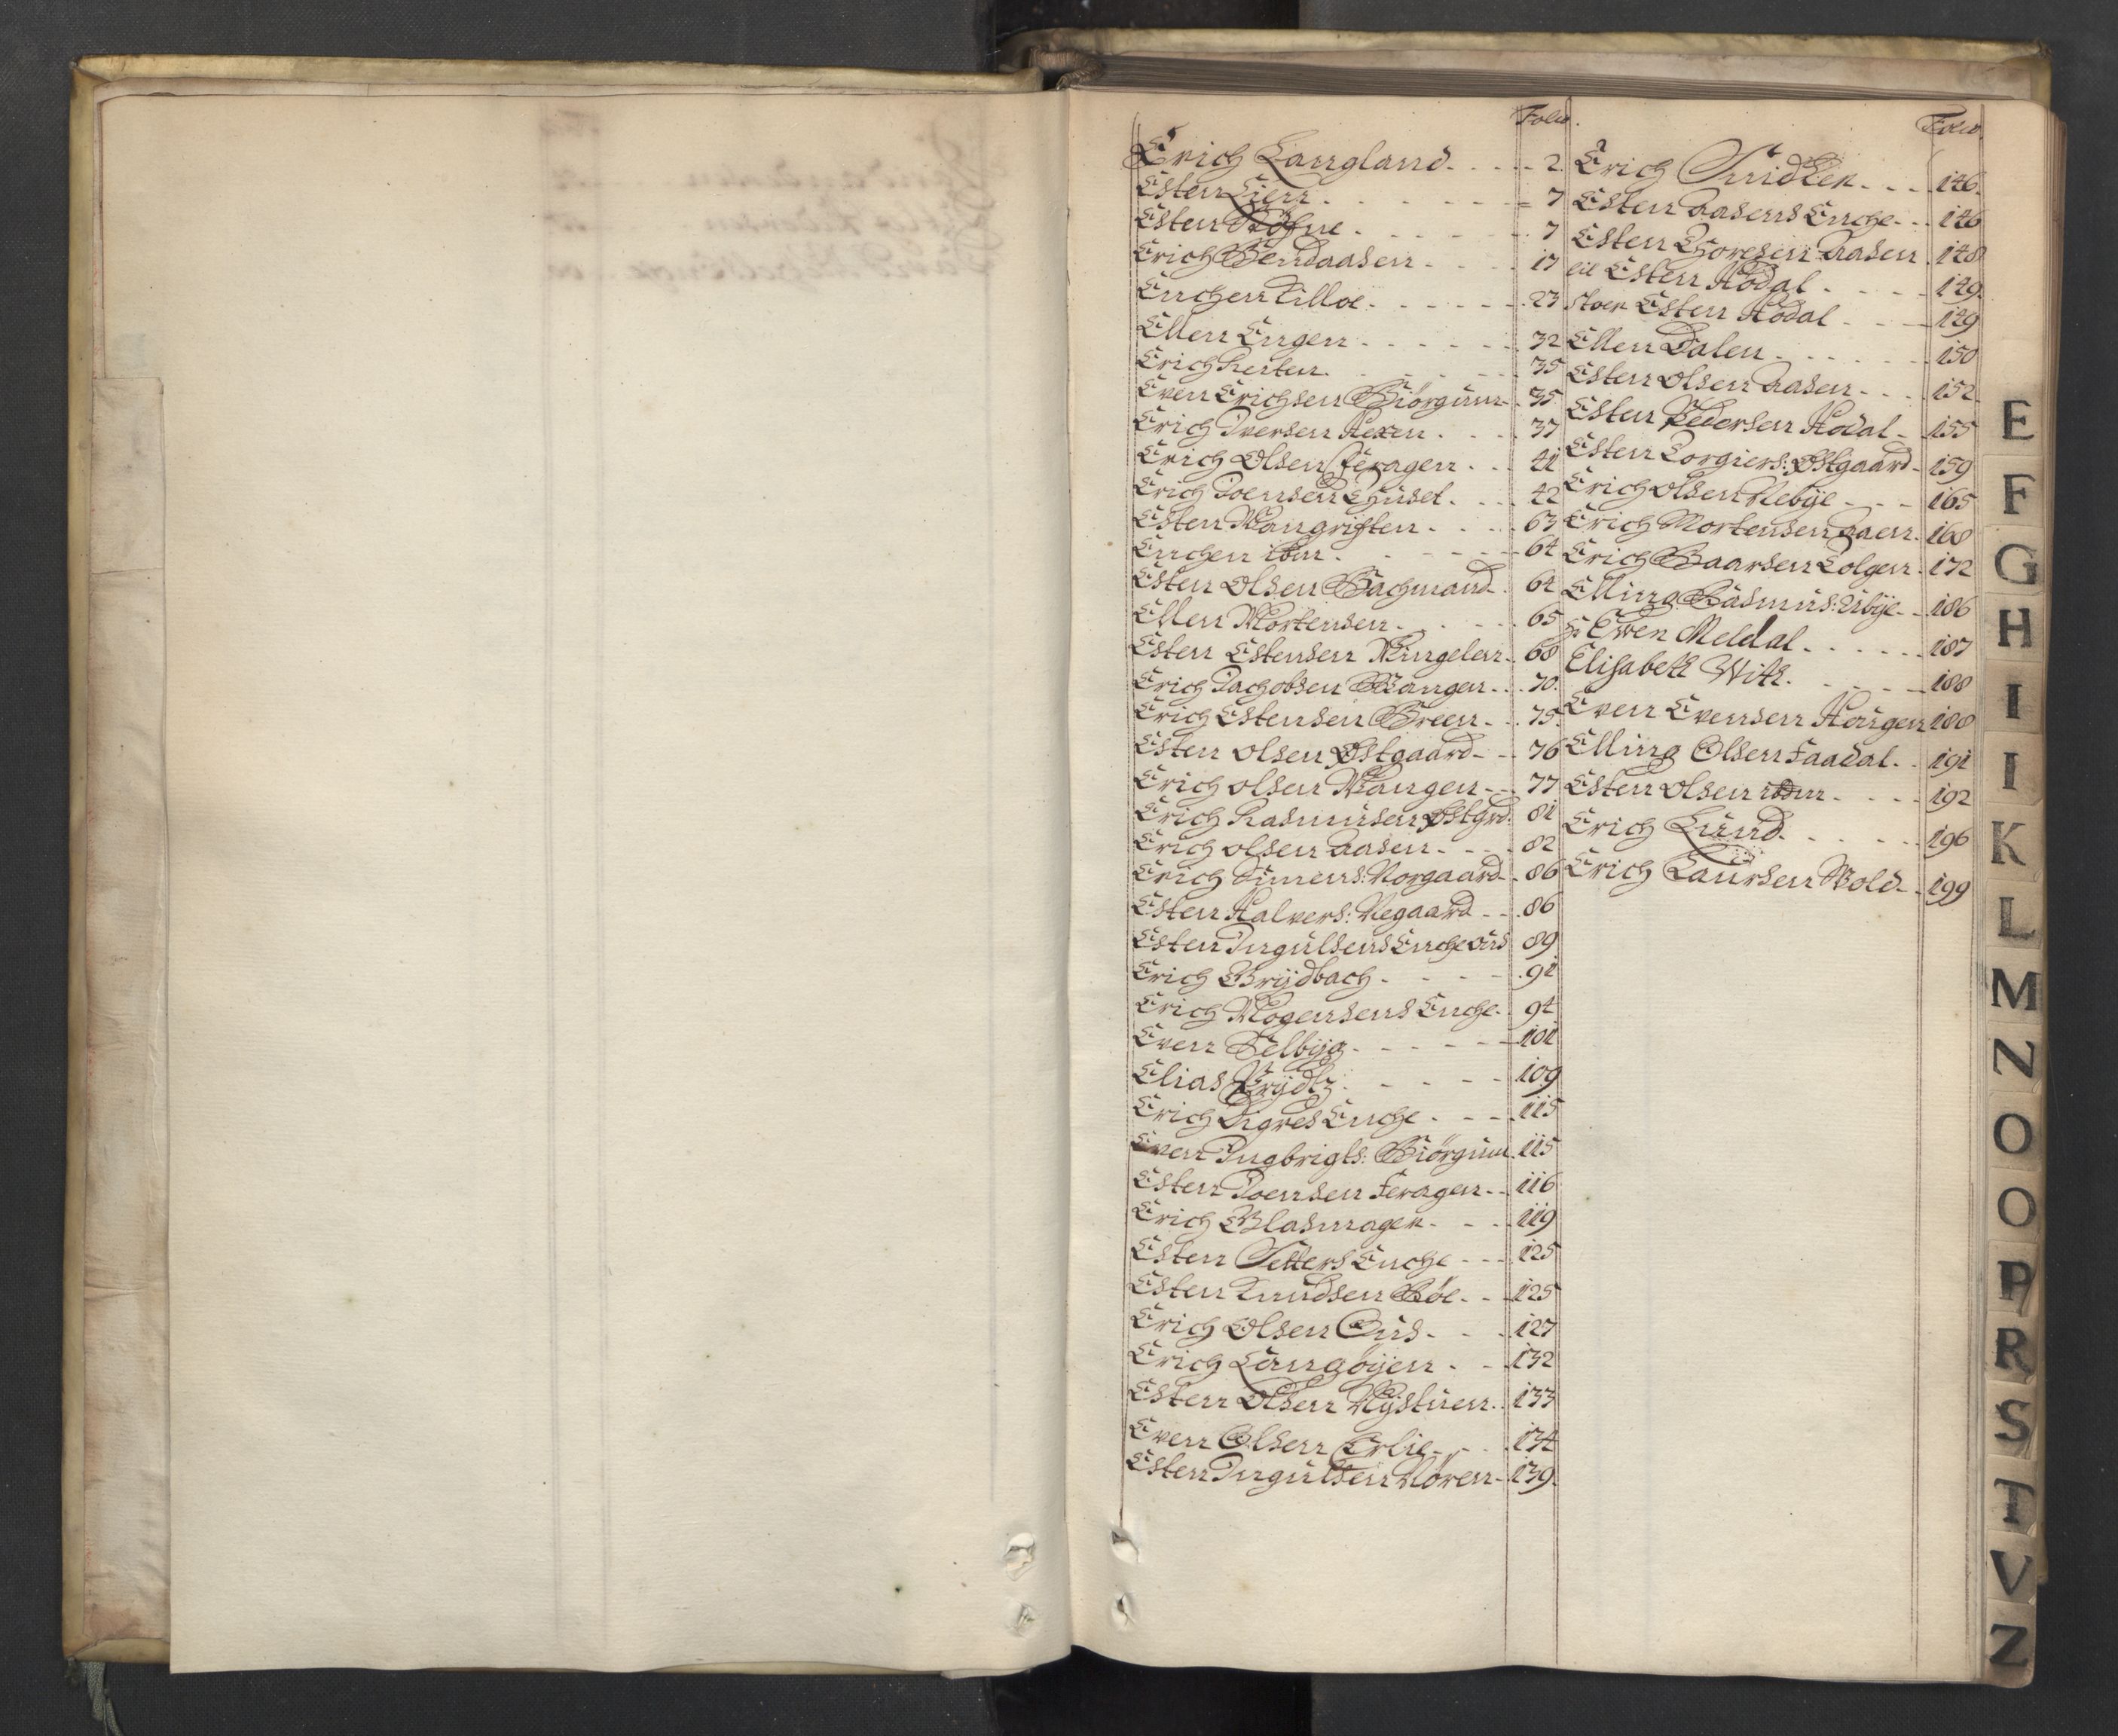 Folio.
Erich Langland 2
Esten Lien 7
Esten 7
Erich Bendaasen 17
Enchen Tilloe 23
Ellen Engen 32
Erich Resten 35
Even Erichsen Biörgum 35
Erich Iversen Hexen 37
Erich Olsen Feragen 41
Erich Joensen Thuset 42
Esten Wangrøften 63
Enchen ibm 64
Esten Olsen Bachmand 64
Ellen Mortensen 65
Esten Estensen Wingelen 68
Erich Jachobsen Wangen 70.
Erich Estensen Breen 75.
Esten Olsen Østgaard 76
Erich Olsen Wangen 77
Erich Rasmusen Østgrd: 81
Erich Olsen Aasen 82
Erich Simens: Norgaard 86
Esten Halvers: Negaard 86
Esten Ingulsens Enche 89
Erich Brydbach 91
Erich Mogensens Enche 94
Even Selbyg 101
Elias Krydtz 109
Erich Digres Enche 115
Even Ingbrigts: Biörgum 115
Esten Joensen Feragen 116
Erich Glasmager 119
Esten Setters Enche 125
Esten Knudsen Bøe 125
Erich Olsen Aus 127
Erich Langøyen 132
Esten Olsen Nystuen 133
Even Olsen Erlie 134
Esten Ingulsen Nøren 139.
Folio.
Erich Smidker 146.
Esten Aasens Enche 146
Esten Thoresen Aasen 148
lil Esten Hodal 149.
stoer Esten Hodal 149
Ellen Dalen 150
Esten Olsen Aasen 152
Esten Pedersen Hodal 155
Esten Torgiers: Østgaard 159
Erich Olsen Nebye 165
Erich Mortensen Aaen 168
Erich Baarsen Tolgen 172
Elling Rasmus: Urbye 186
Hr Ewen Meldal 187
Elisabeth With 188
Even Evensen Haugen 188
Elling Olsen Faadal 191
Esten Olsen ibdm 192
Erich Lund 196
Erich Laursen Wold 199
E
F
G
H
I
I
K
L
M
N
O
O
P
R
S
T
V
Z